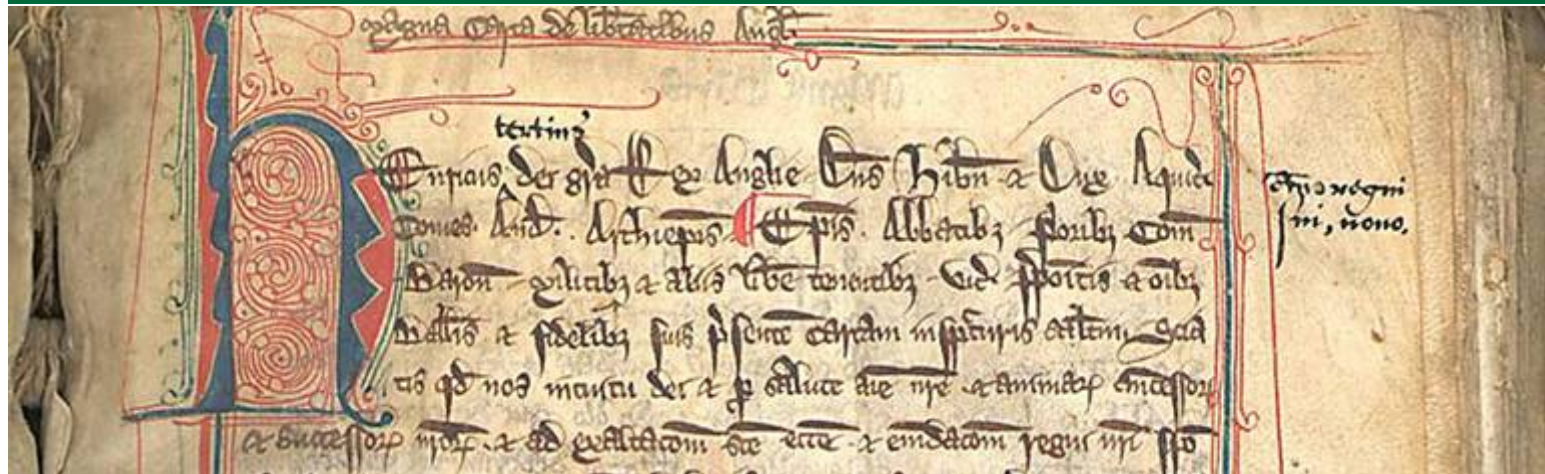 Magna Carta de lib̄tatibus Angl̄
tertius
Henricus dei gr̄a Rex Anglie Dn̄s Hib̄n ⁊ Dux Aquit̄
Comes And̄. Archiep̄is Ep̄is. Abbatibȝ Prioribȝ Com̄
Baron̄ Militibȝ ⁊ aliis lib̄e tenentibȝ Vic̄ p̄poitis ⁊ oīibȝ
Ball̄is ⁊ fidelibȝ suis p̄sente Cartam insp̄cturis sal̄tm Scia
tis qd̄ nos intuitu dei ⁊ p̱ salute aīe nr̄e ⁊ animaꝝ ancessoꝝ
⁊ Successoꝝ nr̄oꝝ ⁊ ad exaltacōm sc̄e ecc̄e ⁊ emdacōm regni nr̄i spō
regni
sui, nono.